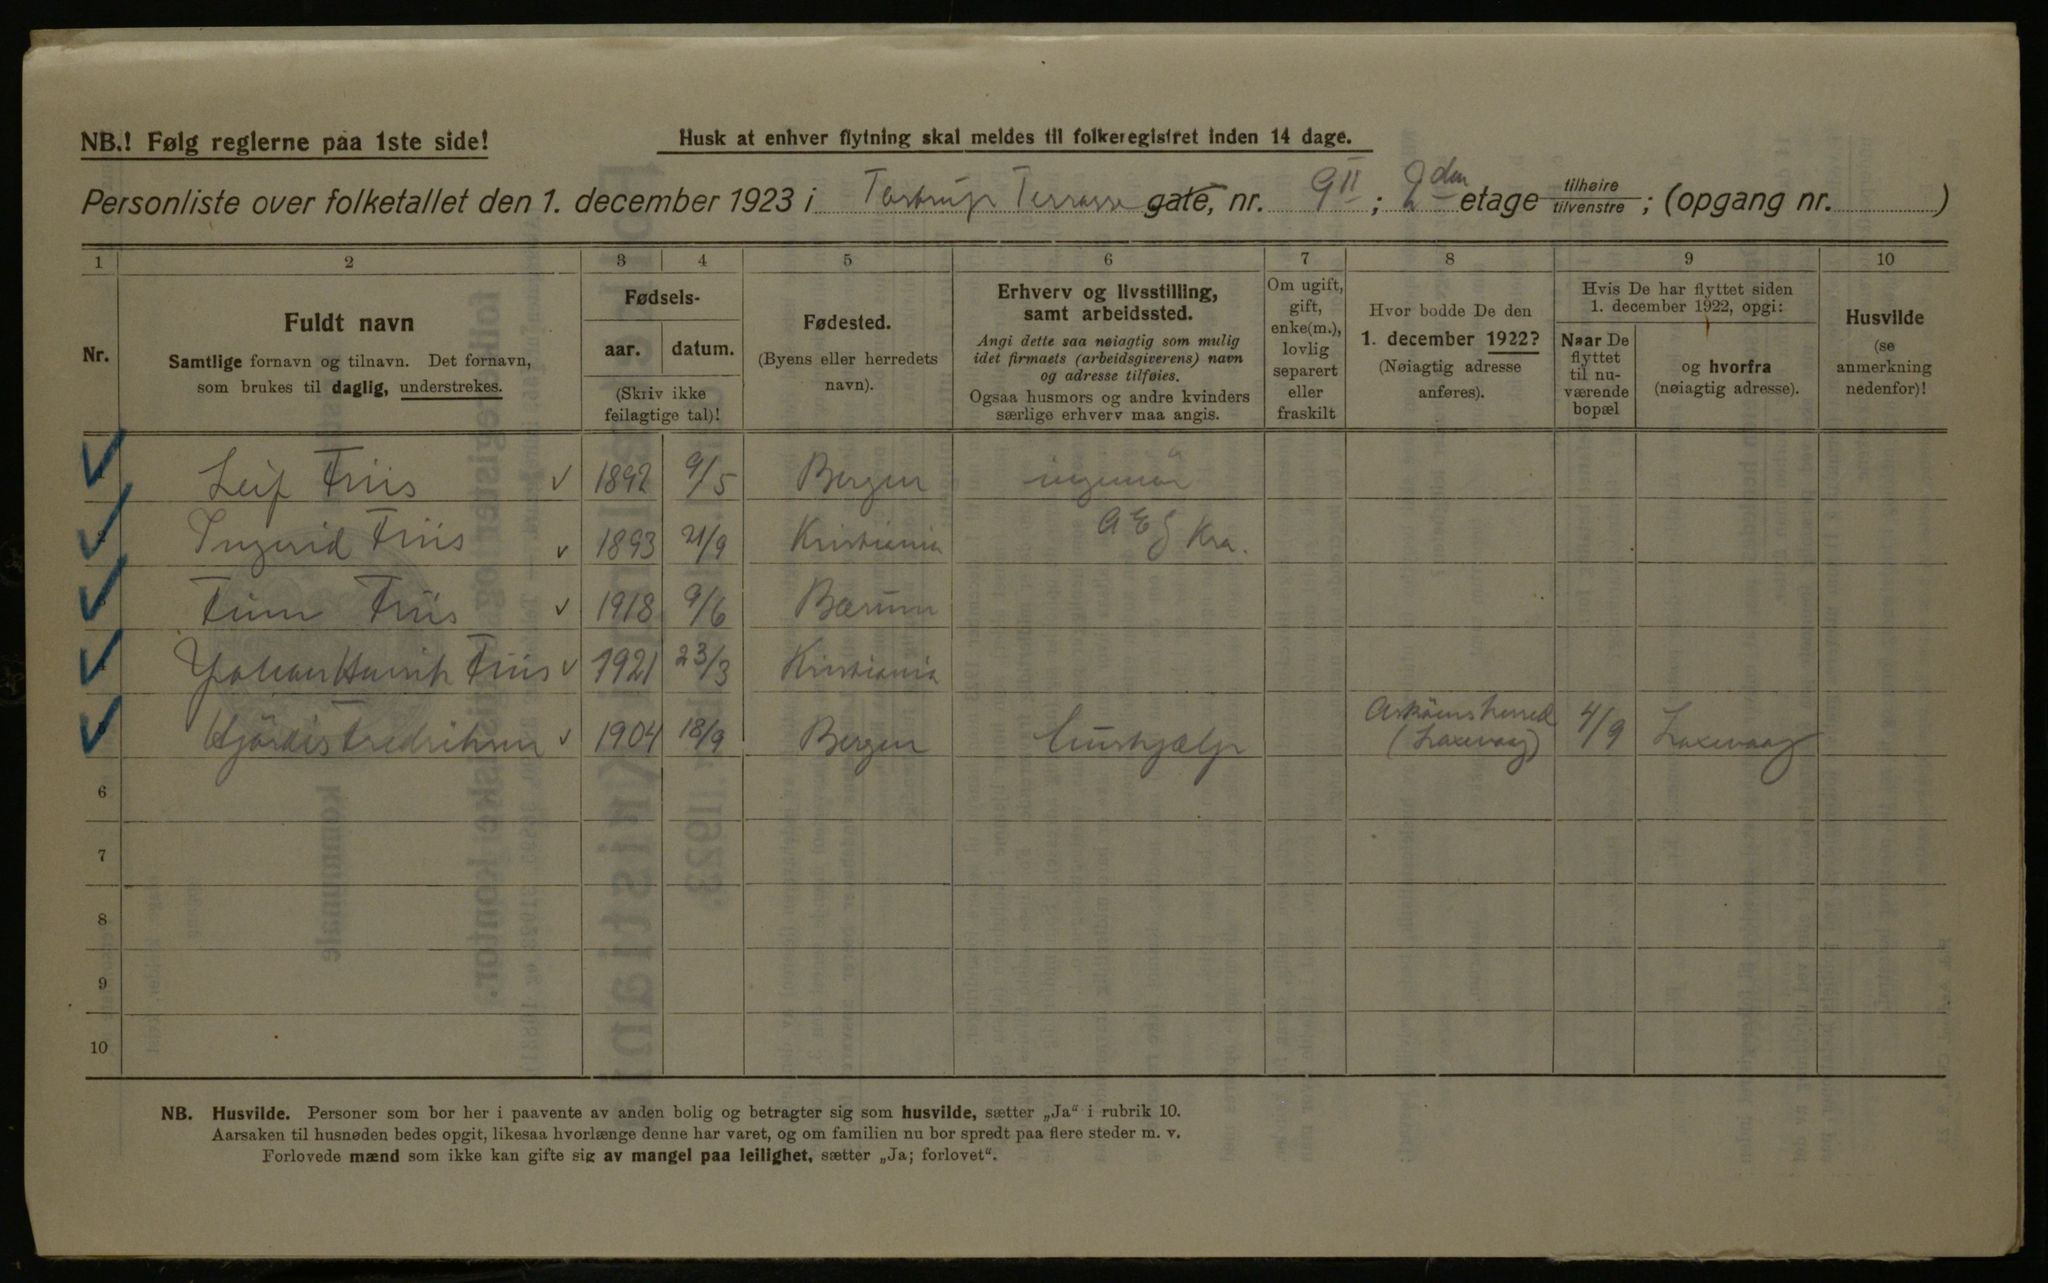 NB.! Følg reglerne paa 1ste side!
Husk at enhver flytning skal meldes til folkeregistret inden 14 dage.
Personliste over folketallet den 1. december 1923 i Tostrup Terrasse gate, nr. 9 II ; 2den etage tilhøire tilvenstre ; (opgang nr. )
1 2 3 4 5 6 7 8 9 10
Nr.
Fuldt navn
Samtlige fornavn og tilnavn. Det fornavn,
som brukes til daglig, understrekes.
Fødsels-
aar. datum.
(Skriv ikke
feilagtige tal)!
Fødested.
(Byens eller herredets
navn).
Erhverv og livsstilling,
samt arbeidssted.
Angi dette saa nøiagtig som mulig
idet firmaets (arbeidsgiverens) navn
og adresse tilføies.
Ogsaa husmors og andre kvinders
særlige erhverv maa angis.
Om ugift,
gift,
enke(m.),
lovlig
separert
eller
fraskilt
Hvor bodde De den
1. december 1922?
(Nøiagtig adresse
anføres).
Hvis De har flyttet siden
1. december 1922, opgi:
Naar De
flyttet
til nu-
værende
bopæl
og hvorfra
(nøiagtig adresse).
Husvilde
(se
anmerkning
nedenfor)!
Leif Friis 1892 9/5 Bergen ingeniør
Ingerid Friis 1893 21/9 Kristiania A E G Kra.
Finn Friis 1918 9/6 Bærum
Johan Henrik Friis 1921 23/3 Kristiania
Hjördis Fredriksen 1904 18/9 Bergen hushjælp Asköens herred (Laxevaag) 4/9 Laxevaag
6
7
8
9
10
NB. Husvilde. Personer som bor her i paavente av anden bolig og betragter sig som husvilde, sætter „Ja“ i rubrik 10.
Aarsaken til husnøden bedes opgit, likesaa hvorlænge denne har varet, og om familien nu bor spredt paa flere steder m. v.
Forlovede mænd som ikke kan gifte sig av mangel paa leilighet, sætter „Ja; forlovet“.